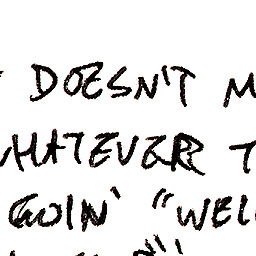 DOESN'T M
WHATEVER T
GOIN' "WEL